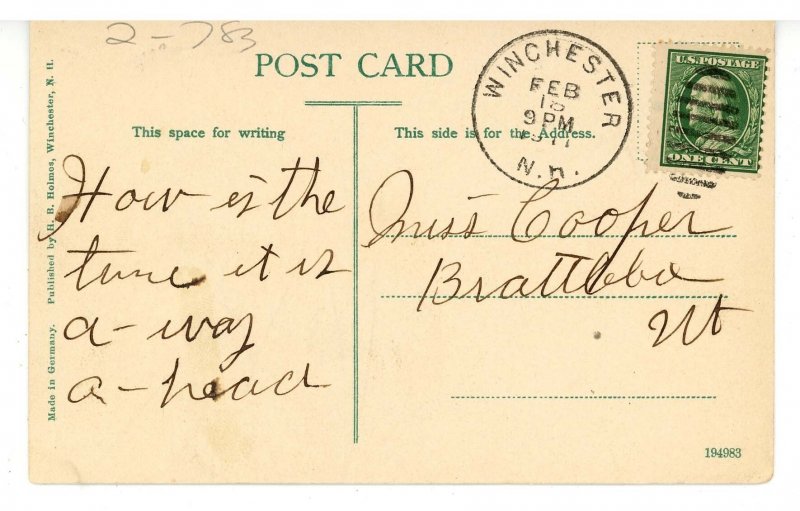 2-783
POST CARD
This space for writing
This side is for the Address.
WINCHESTER
FEB
18
9 PM
1911
N.H.
U.S. POSTAGE
ONE CENT
How is the
time it is
a-way
a-head
Miss Cooper
Brattlebo
Vt
Made in Germany. Published by H. B. Holmes, Winchester, N. H.
194983